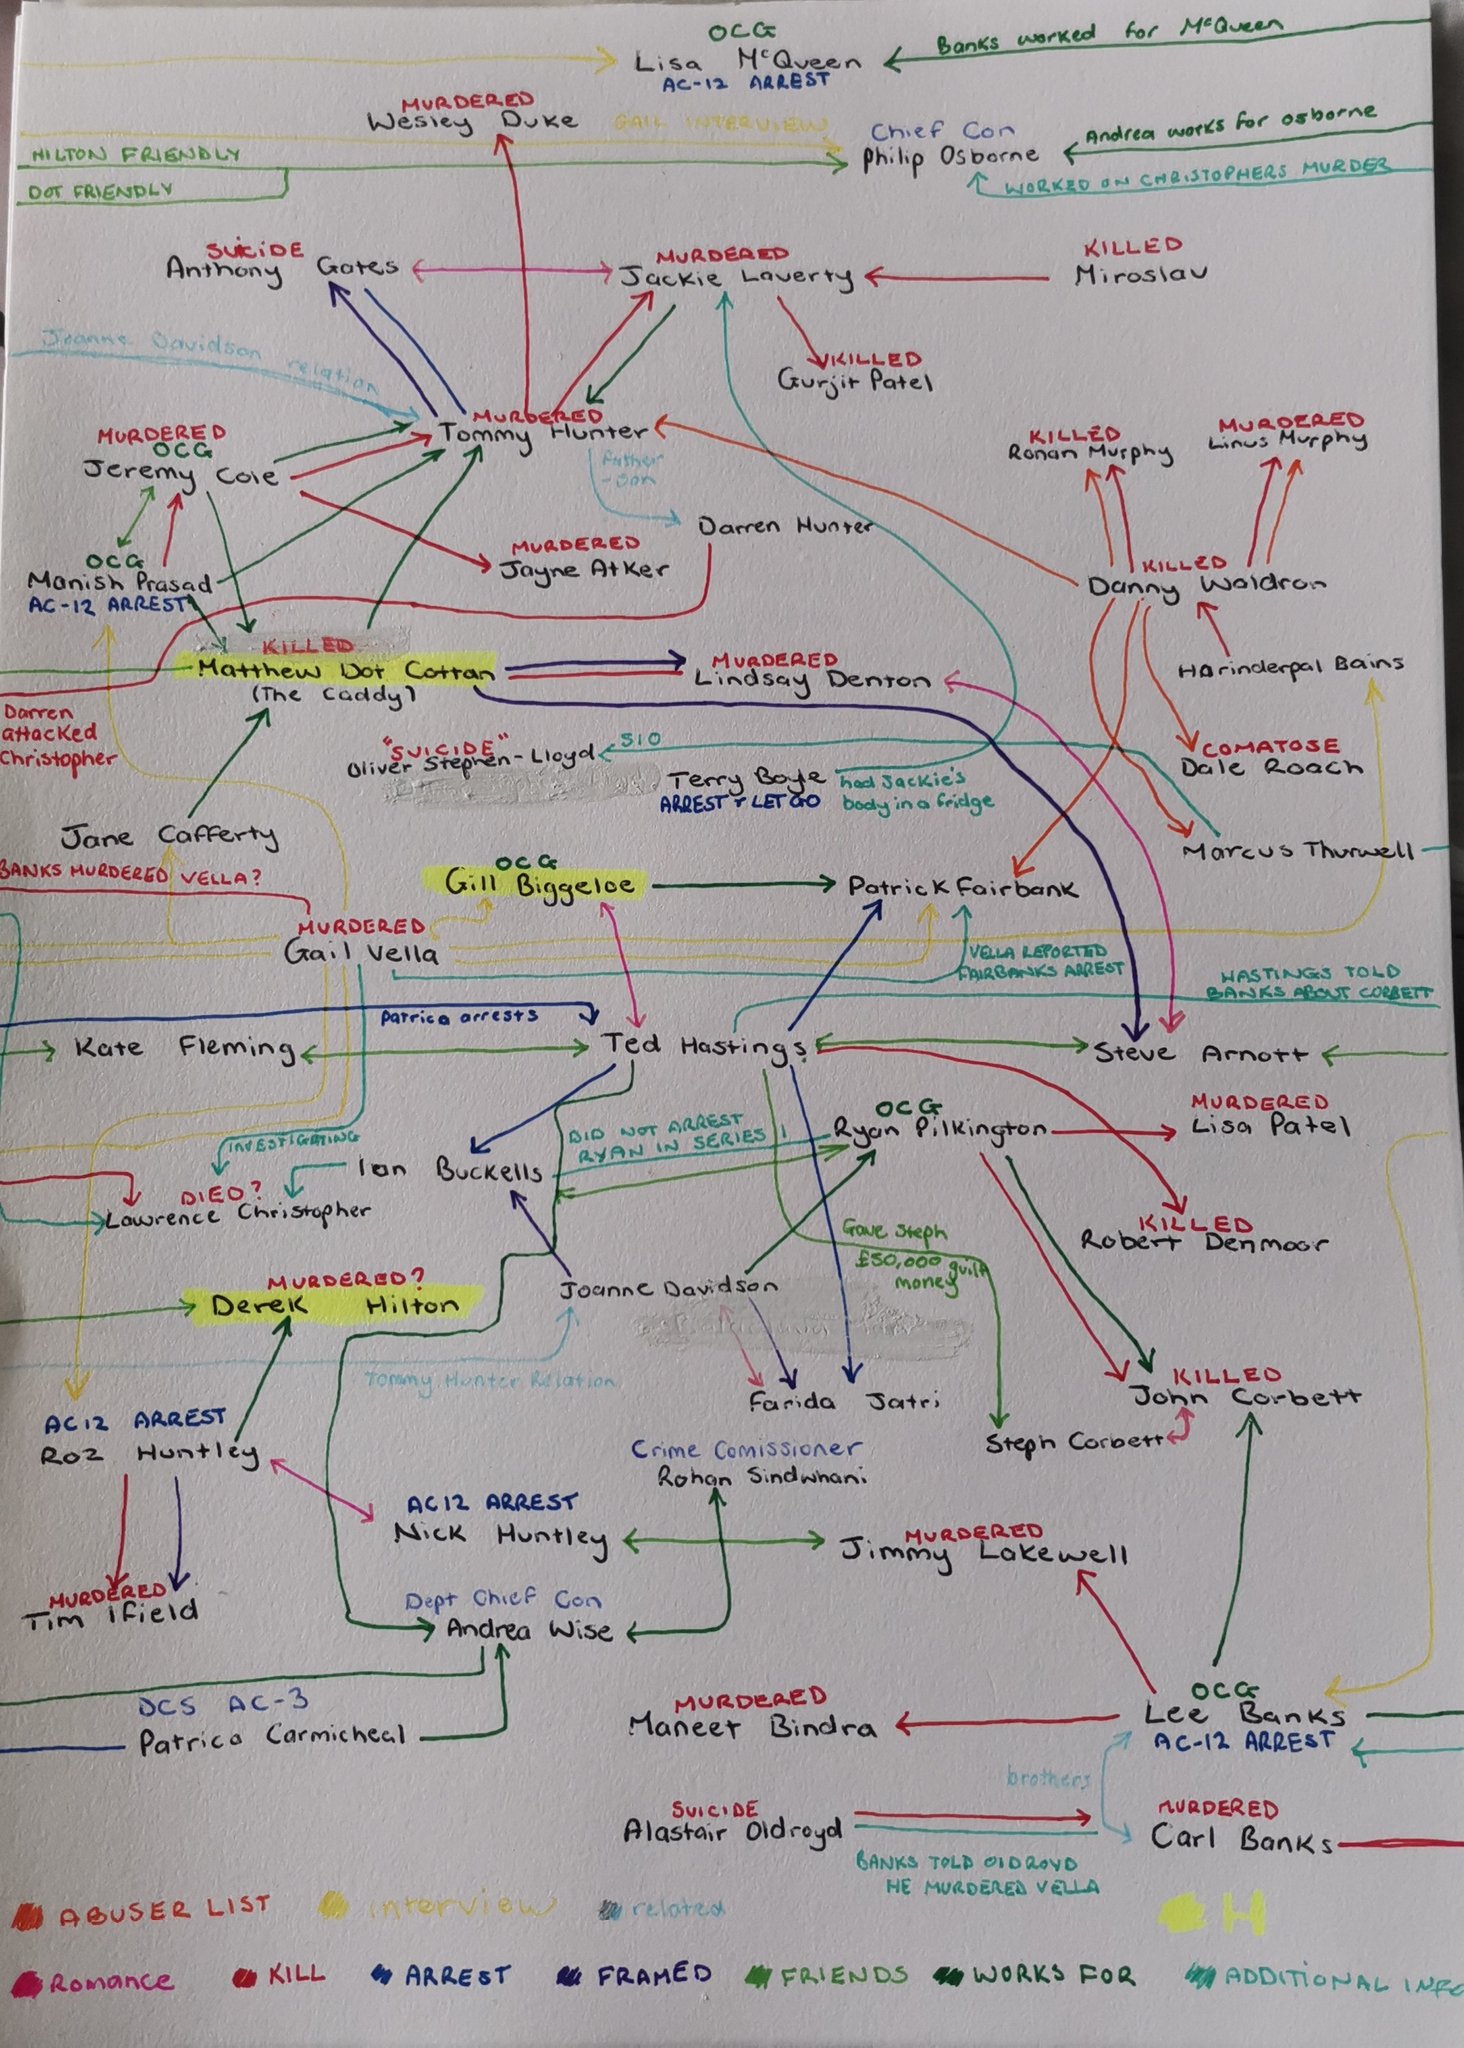 OCG
Lisa McQueen
AC-12 ARREST
Banks worked for McQueen
MURDERED
Wesley Duke
GAIL INTERVIEW
Chief Con
Philip Osborne
Andrea works for osborne
HILTON FRIENDLY
WORKED ON CHRISTOPHERS MURDER
DOT FRIENDLY
SUICIDE
Anthony Gates
MURDERED
Jackie Laverty
KILLED
Miroslav
Joanne Davidson relation
KILLED
Gurjit Patel
MURDERED
Tommy Hunter
MURDERED
OCG
Jeremy Cole
KILLED
Ronan Murphy
MURDERED
Linus Murphy
Father
-son
Darren Hunter
OCG
Manish Prasad
AC-12 ARREST
MURDERED
Jayne Atker
KILLED
Danny Waldron
KILLED
Matthew Dot Cottan
(The Caddy)
MURDERED
Lindsay Denton
Harinderpal Bains
Darren
attacked
Christopher
"SUICIDE"
Oliver Stephen-Lloyd
SIO
COMATOSE
Dale Roach
Terry Boyle
ARREST & LET GO
had Jackie's
body in a fridge
Jane Cafferty
Marcus Thurwell
BANKS MURDERED VELLA?
OCG
Gill Biggeloe
Patrick Fairbank
MURDERED
Gail Vella
VELLA REPORTED
FAIRBANKS ARREST
HASTINGS TOLD
BANKS ABOUT CORBETT
Patrica arrests
Kate Fleming
Ted Hastings
Steve Arnott
OCG
Ryan Pilkington
MURDERED
Lisa Patel
DID NOT ARREST
RYAN IN SERIES 1
INVESTIGATING
Ian Buckells
DIED?
Lawrence Christopher
KILLED
Robert Denmoor
Gave Steph
£50,000 guilt
money
MURDERED?
Derek Hilton
Joanne Davidson
Tommy Hunter Relation
KILLED
John Corbett
Farida Jatri
AC12 ARREST
Roz Huntley
Steph Corbett
Crime Comissioner
Rohan Sindwhani
AC12 ARREST
Nick Huntley
MURDERED
Jimmy Lakewell
MURDERED
Tim Ifield
Dept Chief Con
Andrea Wise
DCS AC-3
Patrica Carmicheal
MURDERED
Maneet Bindra
OCG
Lee Banks
AC-12 ARREST
brothers
SUICIDE
Alastair Oldroyd
MURDERED
Carl Banks
BANKS TOLD OLDROYD
HE MURDERED VELLA
ABUSER LIST
interview
related
H
Romance
KILL
ARREST
FRAMED
FRIENDS
WORKS FOR
ADDITIONAL INFO